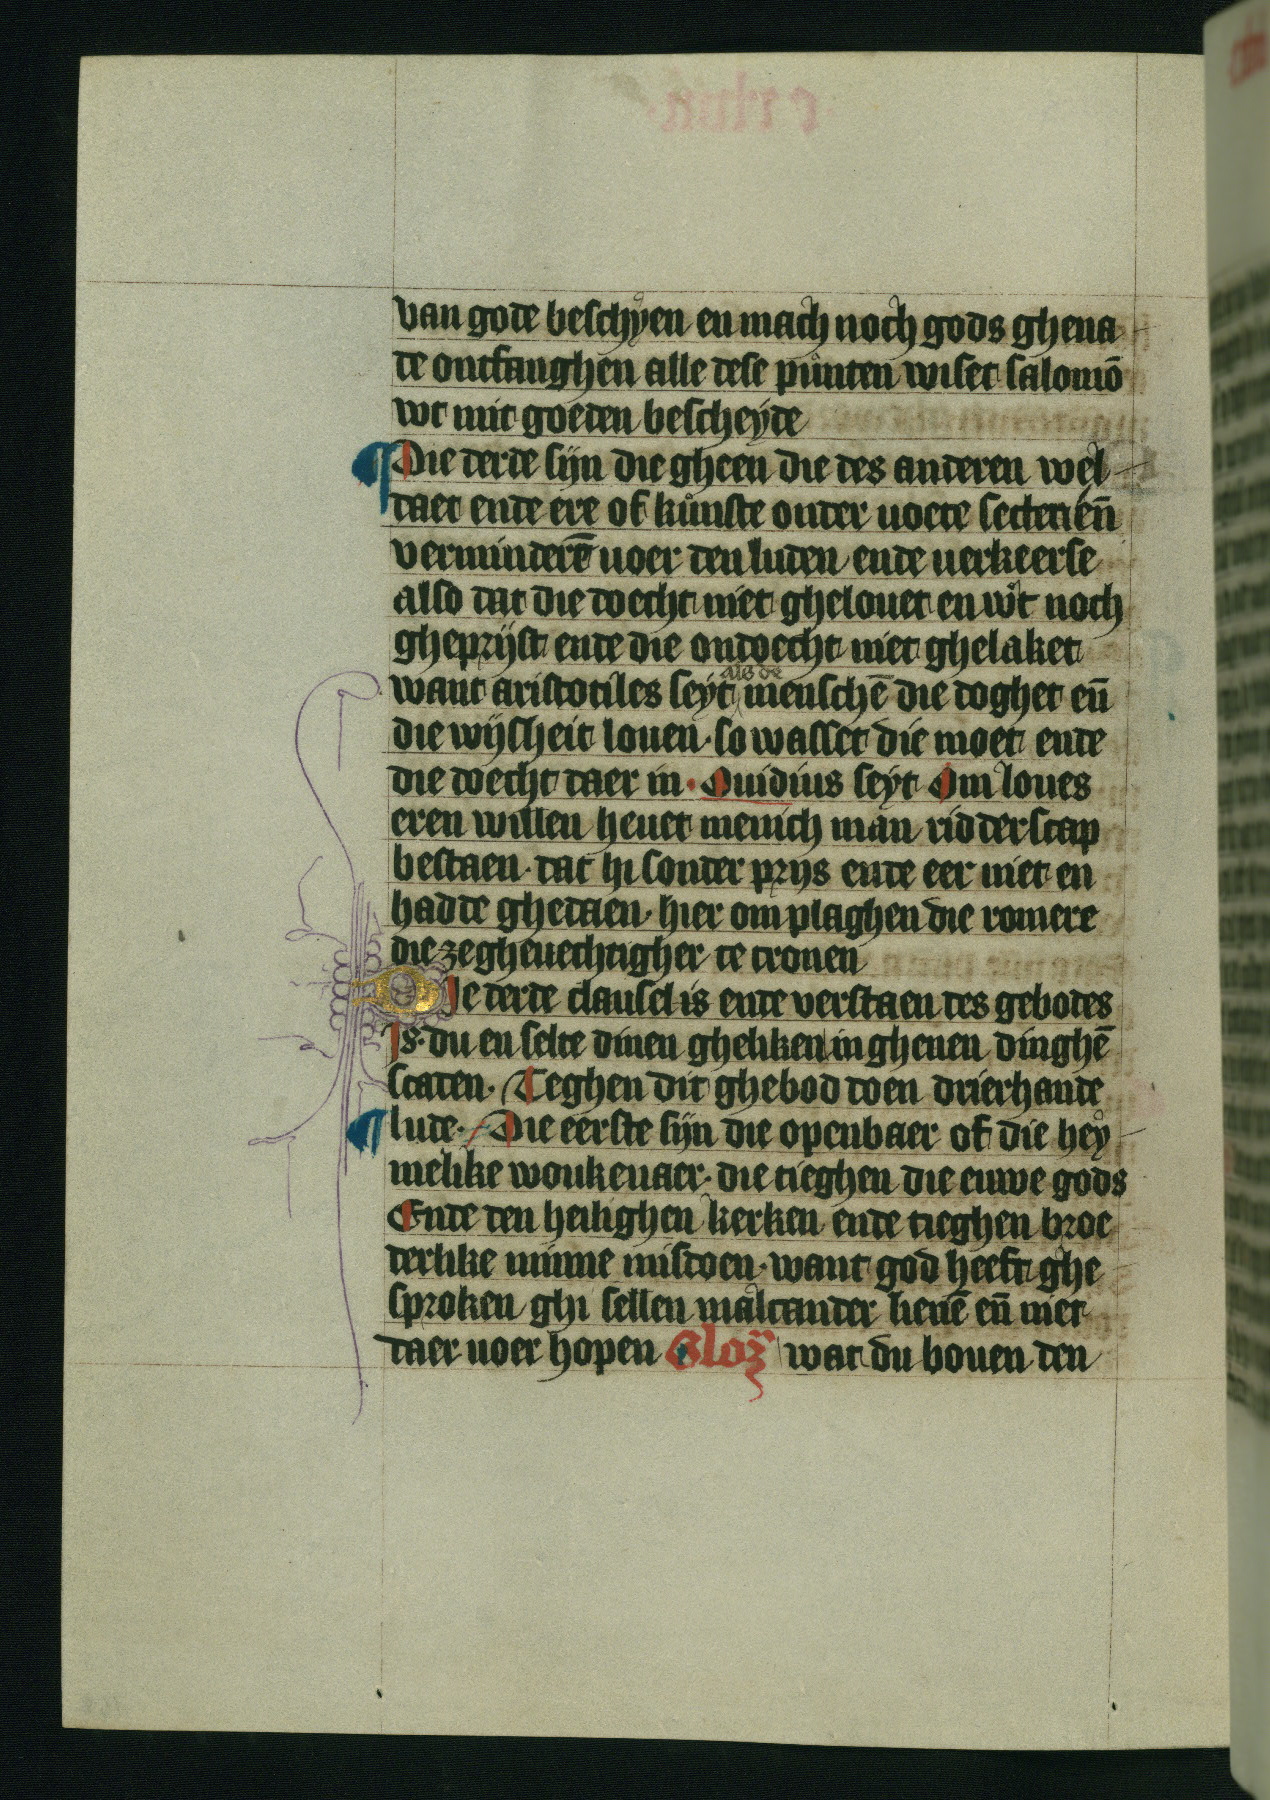 van gode beschÿen en mach noch gods ghena
de ontfanghen alle dese půnten wiset salomō
wt mit goeden bescheyde
¶ Die derde sijn die gheen die des anderen wel
daet ende ere of kůnste onder uoete setten eñ
verminderē uoer den luden ende uerkeerse
also dat die doecht niet ghelouet en wt noch
gheprijst ende die ondoecht niet ghelaket
want aristotiles seyt als de menschē die doghet eñ
die wijsheit louen· so wasset die moet ende
die doecht daer in· Ouidius seyt Om loues
eren willen heuet menich man ridderscap
bestaen· dat hi sonder prijs ende eer niet en
hadde ghedaen· hier om plaghen die romere
die zegheuechtigher te cronen
Die derde clausel is ende verstaen des gebodes
Is· du en selte dinen gheliken in ghenen dinghē
scaden· Teghen dit ghebod doen drierhande
¶ lude· Die eerste sijn die openbaer of die hey
melike woukenaer· die tieghen die euwe gods
Ende den heilighen kerken ende tieghen broe
derlike minne misdoen· want god heeft ghe
sproken ghi sellen malcander lienē eñ niet
daer uoer hopen Gloz wat du bouen den